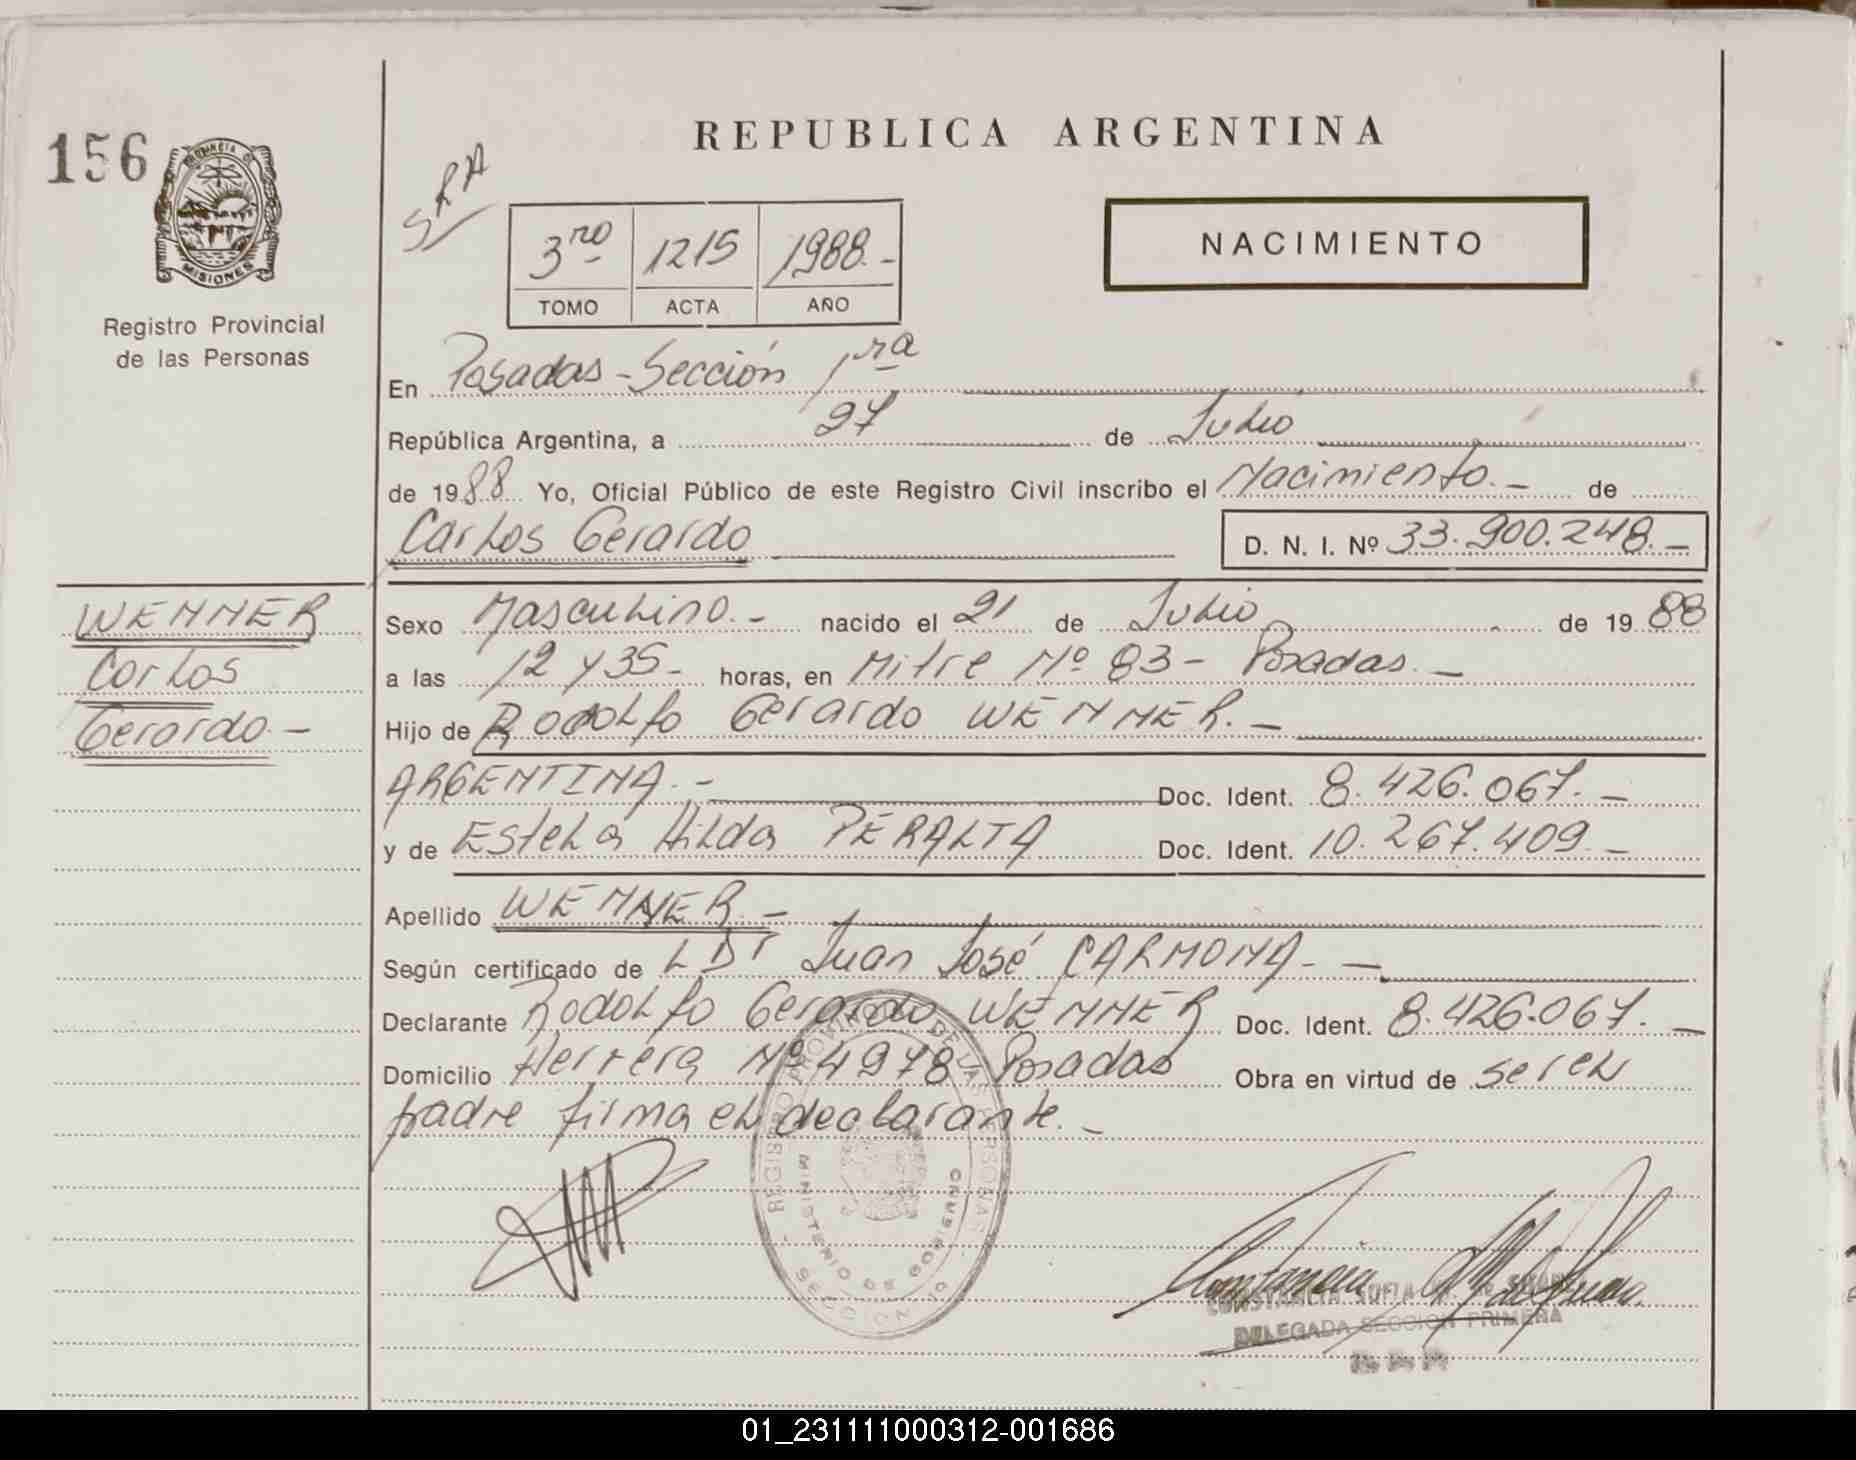 156
PROVINCIA DE
MISIONES
Registro Provincial
de las Personas
REPUBLICA ARGENTINA
SRA
3ro 1215 1988.-
TOMO ACTA AÑO
NACIMIENTO
En Posadas - Sección 1ra
República Argentina, a 27 de Julio
de 1988 Yo, Oficial Público de este Registro Civil inscribo el Nacimiento.- de
Carlos Gerardo D. N. I. Nº 33.900.248.-
WENNER
Carlos
Gerardo.-
Sexo Masculino.- nacido el 21 de Julio de 1988
a las 12 y 35- horas, en Mitre Nº 83- Posadas.-
Hijo de Rodolfo Gerardo WENNER.-
ARGENTINA.- Doc. Ident. 8.426.067.-
y de Estela Hilda PERALTA Doc. Ident. 10.267.409.-
Apellido WENNER.-
Según certificado de L Dr Juan José CARMONA.-
Declarante Rodolfo Gerardo WENNER Doc. Ident. 8.426.067.-
Domicilio Herrera Nº 4978 Posadas Obra en virtud de ser el
padre firma el declarante.-
REGISTRO PROVINCIAL DE LAS PERSONAS
MINISTERIO DE GOBIERNO
SECCION 1a
CONSTANCIA SOFIA
DELEGADA SECCION PRIMERA
01_231111000312-001686